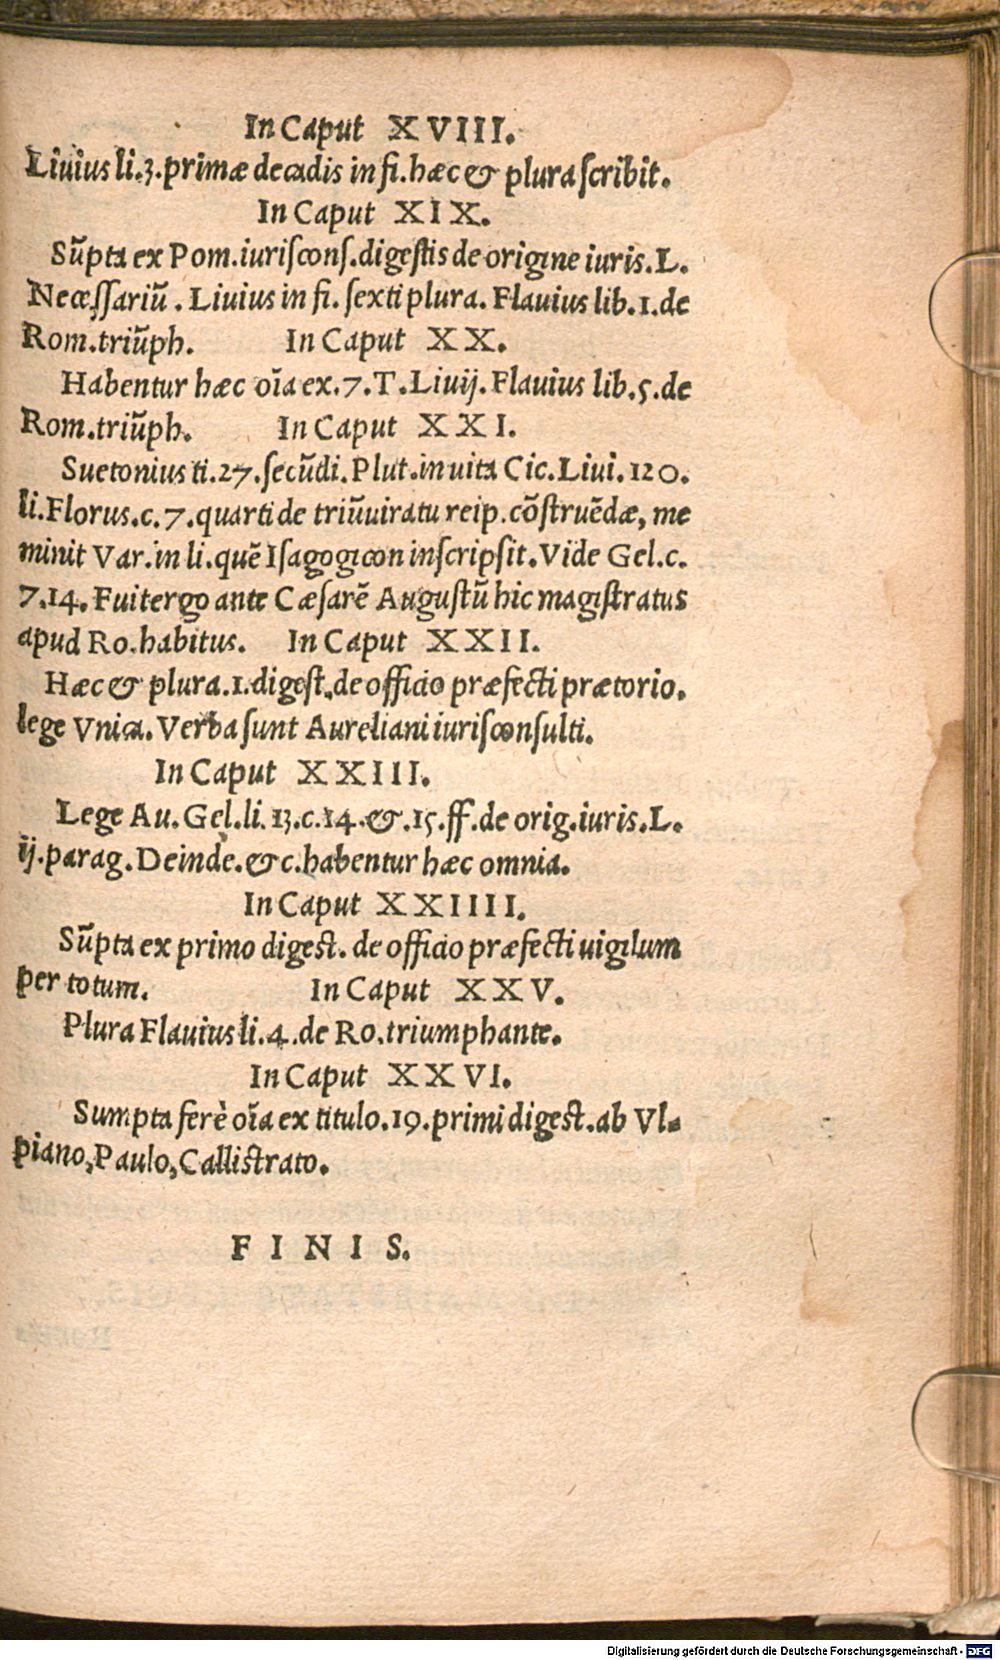 In Caput XVIII.
Liuius li.3.primæ decadis in fi.hæc & plura scribit.
In Caput XIX.
Sũpta ex Pom.iuriscons.digestis de origine iuris.L.
Necessariũ. Liuius in fi. sexti plura. Flauius lib.1.de
Rom.triũph. In Caput XX.
Habentur hæc oĩa ex.7.T.Liuij.Flauius lib.5.de
Rom.triũph. In Caput XXI.
Suetonius ti.27.secũdi.Plut.in uita Cic.Liui.120.
li.Florus.c.7.quarti de triũuiratu reip.cõstruẽdæ, me
minit Var.in li.quẽ Isagogicon inscripsit.Vide Gel.c.
7.14. Fuit ergo ante Cæsarẽ Augustũ hic magistratus
apud Ro.habitus. In Caput XXII.
Hæc & plura.1.digest.de officio præfecti prætorio.
lege Vnica. Verba sunt Aureliani iurisconsulti.
In Caput XXIII.
Lege Au. Gel.li.13.c.14.&.15.ff.de orig.iuris.L.
ij.parag.Deinde.&c.habentur hæc omnia.
In Caput XXIIII.
Sũpta ex primo digest. de officio præfecti uigilum
per totum. In Caput XXV.
Plura Flauius li.4.de Ro.triumphante.
In Caput XXVI.
Sumpta ferè oĩa ex titulo.19.primi digest.ab Vl-
piano,Paulo,Callistrato.
FINIS.
Digitalisierung gefördert durch die Deutsche Forschungsgemeinschaft - DFG